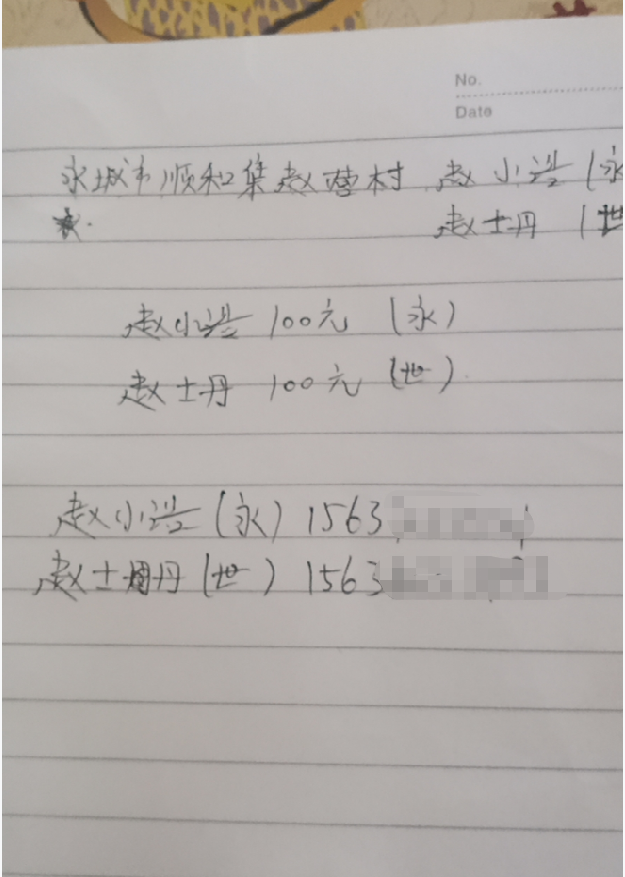 No.
Date
永城市顺和集赵营村 赵小港(永
赵士丹(世
赵小港 100元 (永)
赵士丹 100元 (世)
赵小港(永) 1563
赵士丹(世) 1563